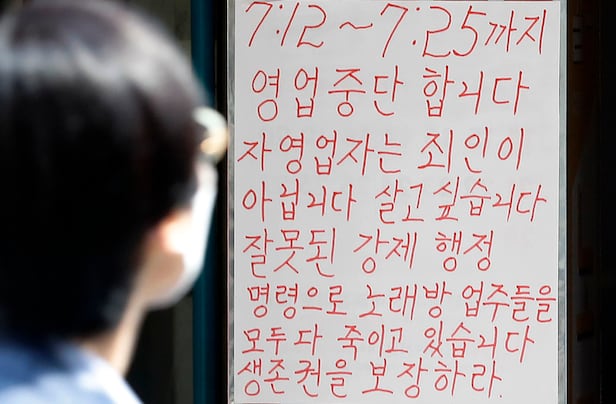 7:12~7:25까지
영업중단 합니다
자영업자는 죄인이
아닙니다 살고싶습니다
잘못된 강제 행정
명령으로 노래방 업주들을
모두 다 죽이고 있습니다
생존권을 보장하라.